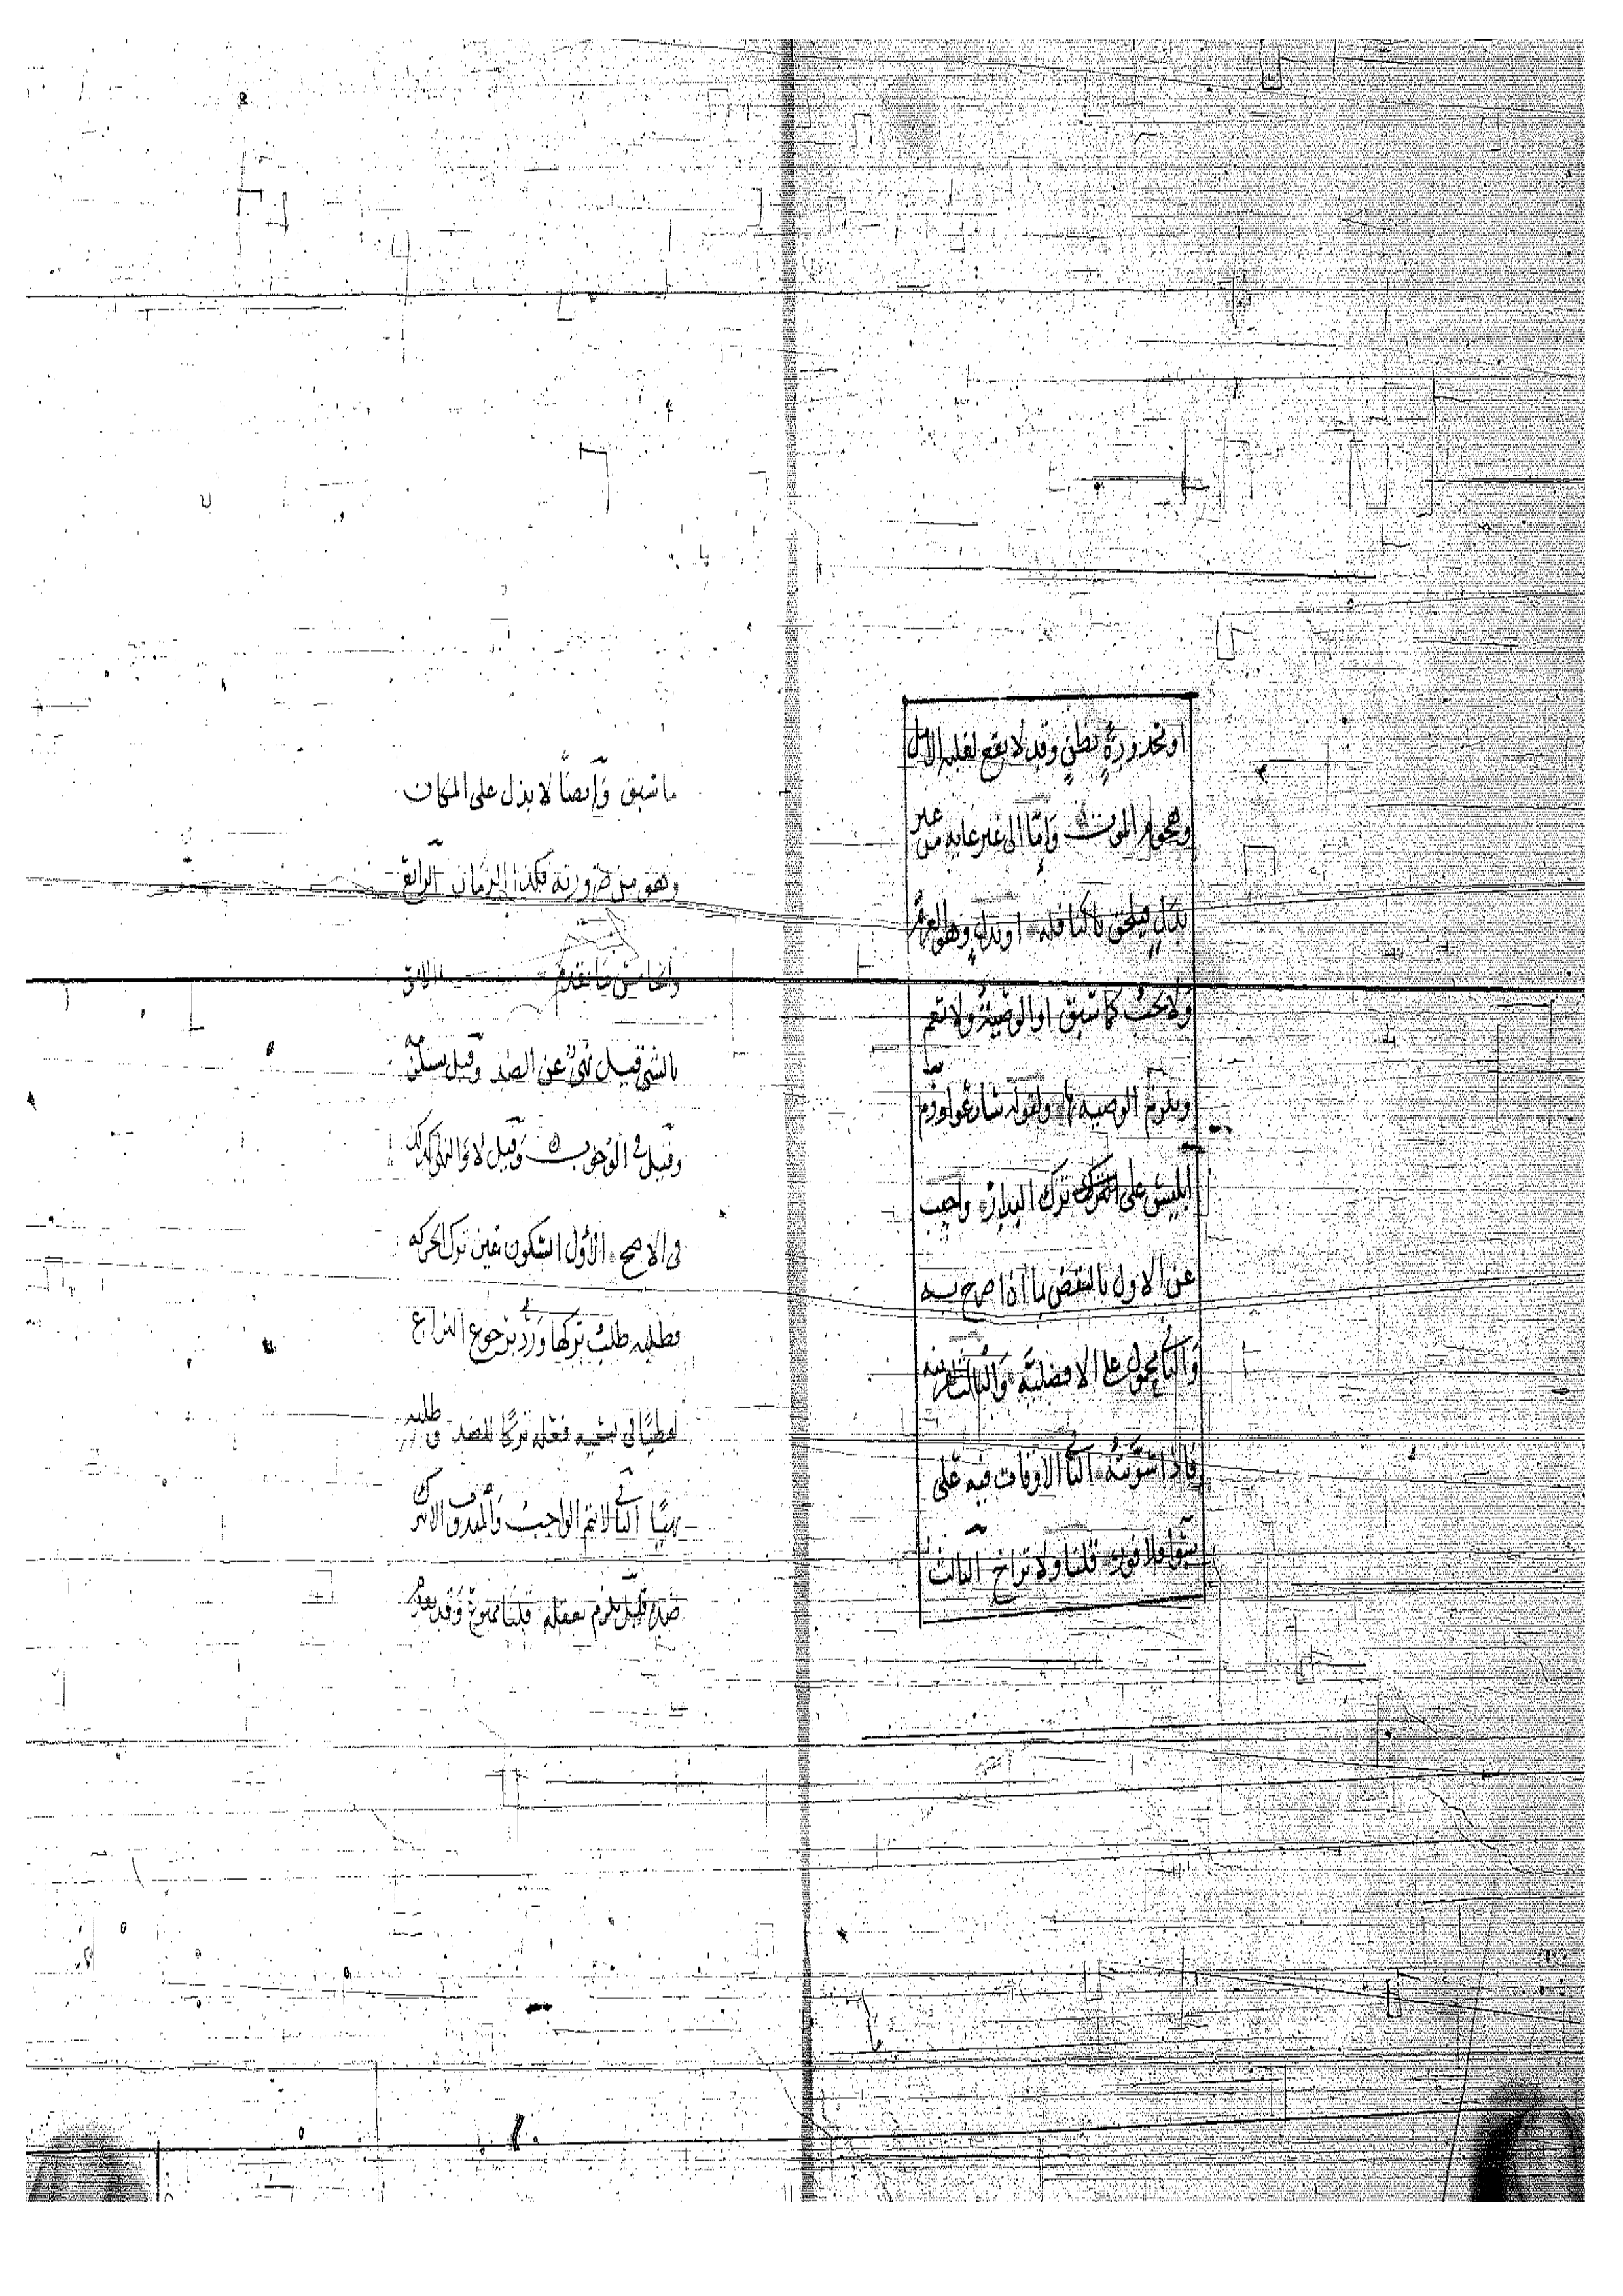 او محدود بظن وقد لا يقع لغلبة الامل
وهجوم الموت وإما الى غير غاية من غير
بدل فيلحق بالنافلة او بدل وهو العزم
ولا يجب كما سبق او الوصية ولا تعم
ويلزم الوصية بها ولقوله سارعوا وذم
ابليس على ترك البدار واجيب
عن الاول بالنقض بما اذا صرح به
والثاني محمول على الافضلية والثالث لقرينة
فاذا سويته الثاني الاوقات فيه على
سواء فلا فور قلنا ولا تراخ الثالث
ما سبق وايضا لا يدل على المكان
وهو من ضرورته فكذا الزمان الرابع
والخامس ما تقدم الامر
بالشي قيل نهي عن الضد وقيل يستلزمه
وقيل في الوجوب وقيل لا والنهي كذلك
في الاصح الأول السكون عين ترك الحركة
فطلبه طلب تركها ورد برجوع النزاع
لفظيا في تسمية فعله تركا للضد وطلبه
نهيا الثاني لا يتم الواجب الا بترك
ضده قيل يلزم تعقله قلنا ممنوع وقد